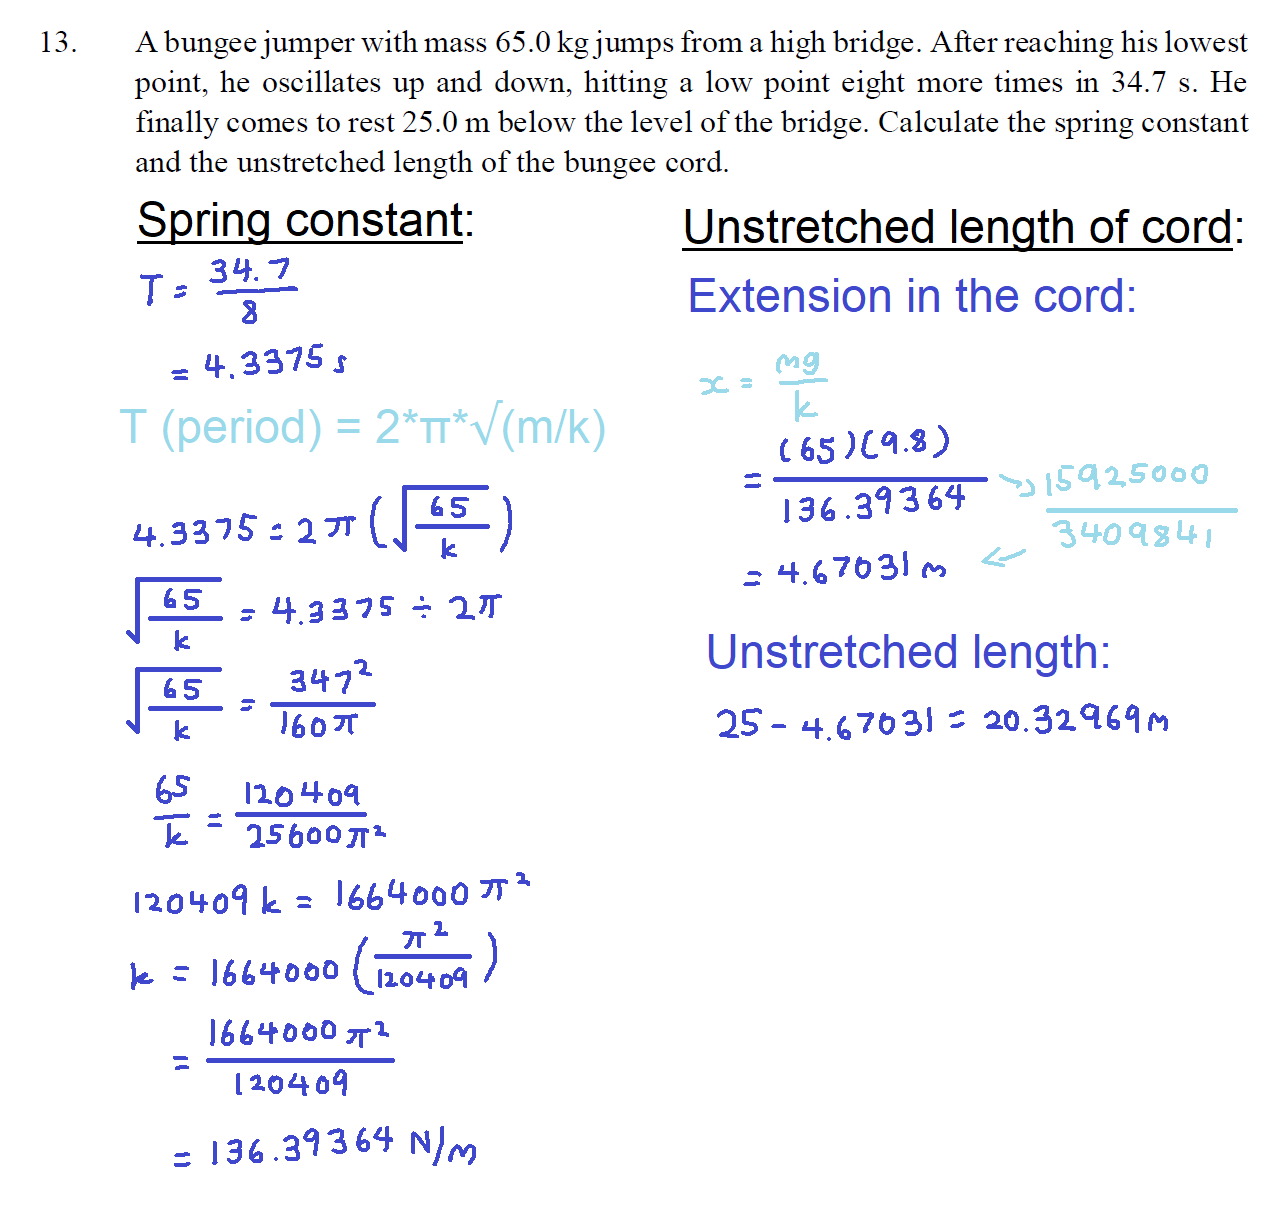 13. A bungee jumper with mass 65.0 kg jumps from a high bridge. After reaching his lowest
point, he oscillates up and down, hitting a low point eight more times in 34.7 s. He
finally comes to rest 25.0 m below the level of the bridge. Calculate the spring constant
and the unstretched length of the bungee cord.
Spring constant:
T = 34.7/8
= 4.3375 s
T (period) = 2*π*√(m/k)
4.3375 = 2π(√(65/k))
√(65/k) = 4.3375 ÷ 2π
√(65/k) = 347²/160π
65/k = 120409/25600π²
120409k = 1664000π²
k = 1664000(π²/120409)
= 1664000π²/120409
= 136.39364 N/m
Unstretched length of cord:
Extension in the cord:
x = mg/k
= (65)(9.8)/136.39364 → 15925000/3409841
= 4.67031 m ←
Unstretched length:
25 - 4.67031 = 20.32969m